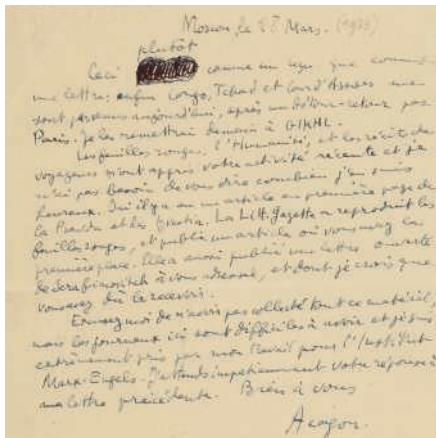 Moscou, le 28 Mars. (1933)
plutôt
Ceci comme un reçu que comme
une lettre; enfin Congo, Tchad et Cour d'Assises me
sont parvenus aujourd'hui, après un détour-retour par
Paris. Je les remettrai demain à GIKHL.
Les feuilles rouges, l'Humanité, et les récits de
voyageurs m'ont appris votre activité récente et je
n'ai pas besoin de vous dire combien j'en suis
heureux. Ici il y a eu un article en première page de
la Pravda et des Izvestia. La Litt. Gazette a reproduit les
feuilles rouges, et publié un article où vous avez la
première place. Elle a aussi publié une lettre ouverte
de Serafimovitch à vous adressée, et dont je crois que
vous avez dû la recevoir.
Excusez-moi de n'avoir pas collecté tout ce matériel,
mais les journaux ici sont difficiles à avoir et je suis
extrêmement pris par mon travail pour l'Institut
Marx-Engels. J'attends impatiemment votre réponse à
ma lettre précédente. Bien à vous
Aragon.